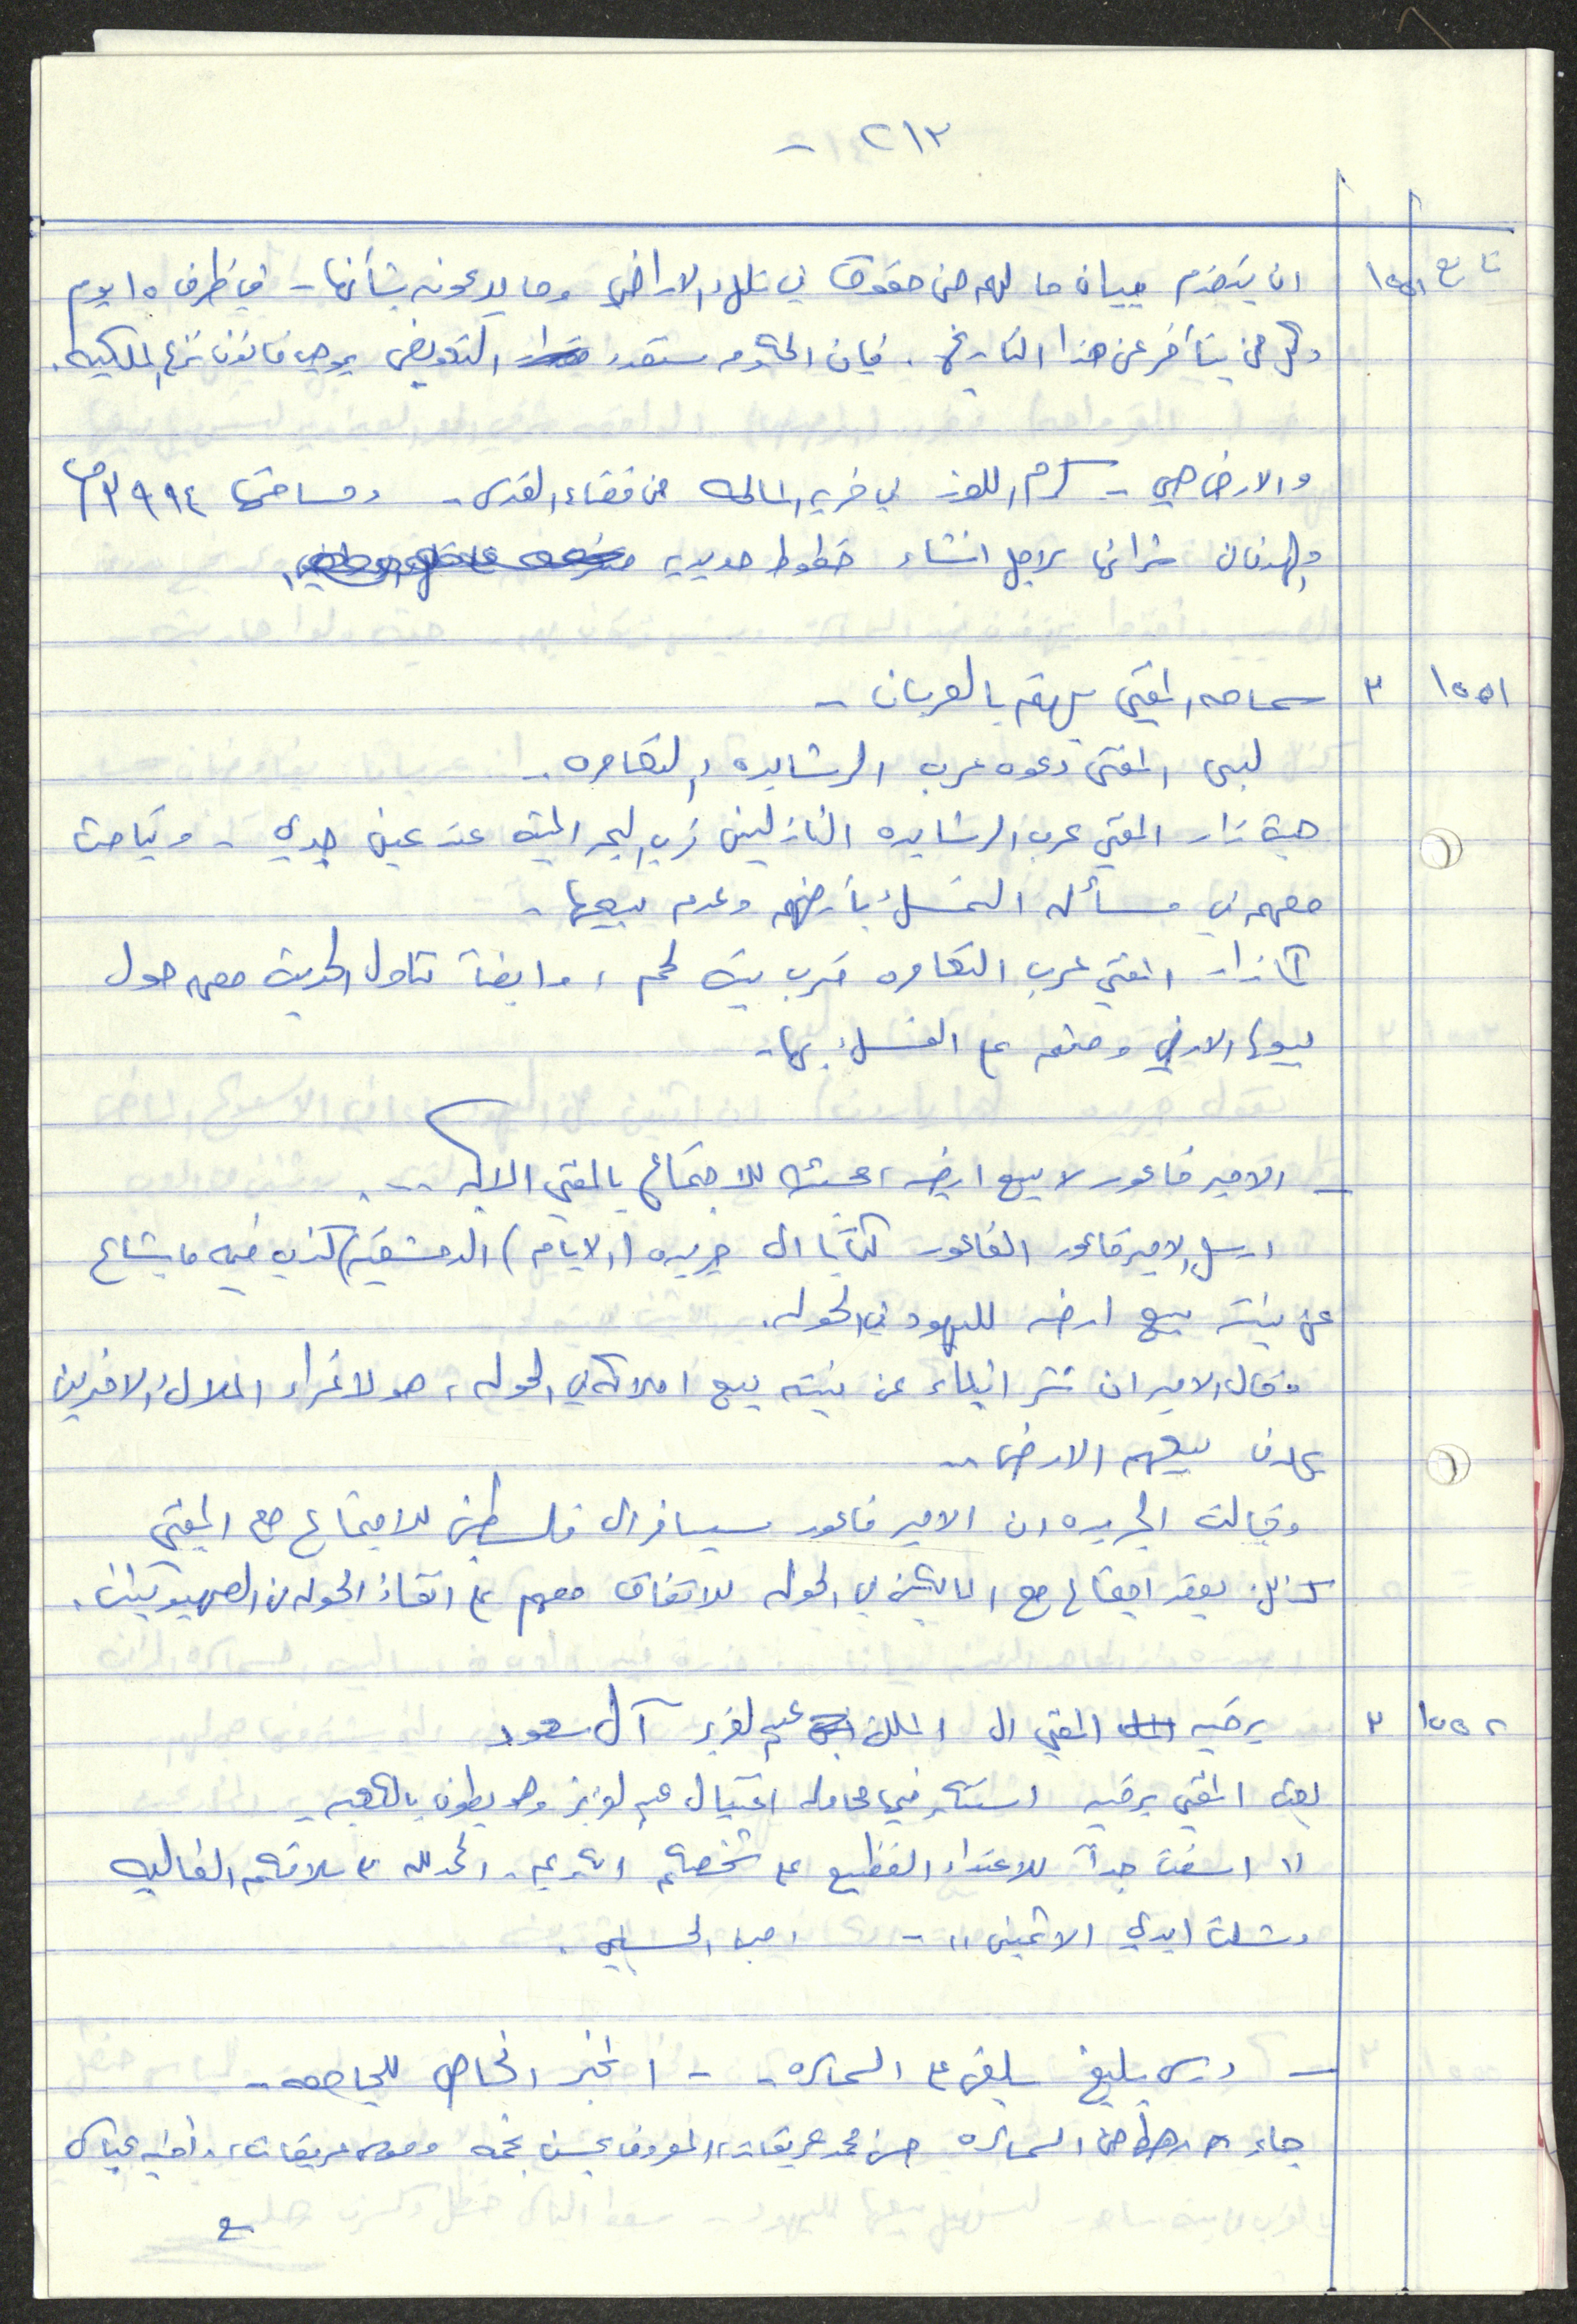 ٢١٣ -
تابع ١٥٥١ ان يتقدم ببيان ما لهم من حقوق في تلك الاراضي وما يدعونه بشأنها - في ظرف ١٥ يوم
وكل من يتأخر عن هذا التاريخ . فان الحكومه ستقدر التعويض بموجب قانون نزع الملكيه .
والارض هي - كرم اللوز في قريه المالحه من قضاء القدس - ومساحتها ٣٩٩٤ م
والهدف من شرائها لاجل انشاء خطوط حديديه
١٥٥١ ٣ سماحه المفتي يهتم بالعربان -
لبى المفتي دعوه عرب الرشايده والتعامره -
حيث زار المفتي عرب الرشايده النازلين قرب البحر الميت عند عين جدي - وتباحث
معهم في مسأله التمسك بأرضهم وعدم بيعها -
كما زار المفتي عرب التعامره قرب بيت لحم ، وايضاً تناول الحديث معهم حول
بيوع الاراضي وحثهم على التمسك بها -
- الامير فاعور لا يبيع ارضه للاجتماع بالمفتي الاكبر -- .
ارسل الامير فاعور الفاعور كتاباً الى جريده (الايام) الدمشقيه كذب فيه ما يشاع
عن نيته بيع ارضه لليهود في الحوله .
وقال الامير ان نشر انباء عن نيته بيع املاكه في الحوله ، هو لاغراء الملاك الاخرين
بهدف بيعهم الارض --
وقالت الجريده ان الامير فاعور سيسافر الى فلسطين للاجتماع مع المفتي
كذلك يعقد اجتماع مع المالكين في الحوله للاتفاق معهم على انقاذ الحوله من الصهيونيين .
١٥٥٢ ٣ برقيه المفتي الى الملك عبد العزيز آل سعود
بعث المفتي برقيه استنكر فيها محاوله اغتيال عبد العزيز وهو يطوف بالكعبه -
" اسفت جداً للاعتداء الفظيع على شخصكم الكريم . الحمد لله على سلامتكم الغاليه
وشلت ايدي الاثمين " - امين الحسيني .
- درس بليغ يلقى على السماسره - - الخبر الخاص للجامعه -
جاء رهط من السماسره حسن محمد عريقات المعروف بحسن نجمه وموسى عريقات ، واخيه عباس
ع